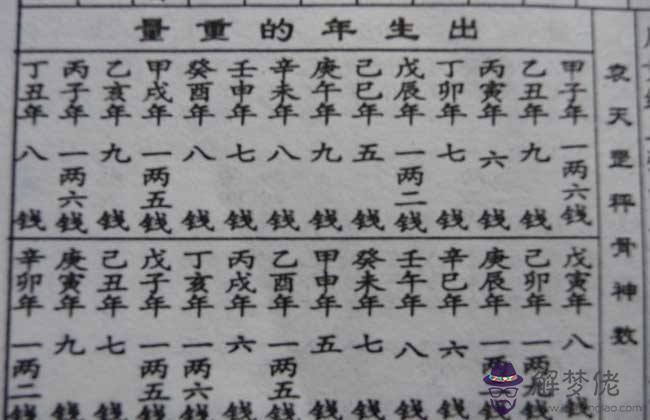 袁天罡秤骨神数
出生年的重量
甲子年一两六钱
乙丑年九钱
丙寅年六钱
丁卯年七钱
戊辰年一两二钱
己巳年五钱
庚午年九钱
辛未年八钱
壬申年七钱
癸酉年八钱
甲戌年一两五钱
乙亥年九钱
丙子年一两六钱
丁丑年八钱
戊寅年八
己卯年一两
庚辰年一两
辛巳年六钱
壬午年八钱
癸未年七钱
甲申年五钱
乙酉年一两五钱
丙戌年六钱
丁亥年一两六钱
戊子年一两五钱
己丑年七钱
庚寅年九钱
辛卯年一两二钱
解梦佬